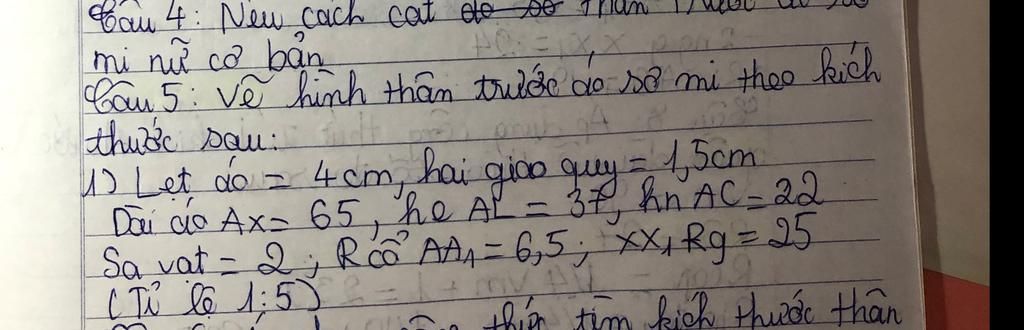 Câu 4: Nêu cách cắt thân trước áo sơ
mi nữ cơ bản
Câu 5: Vẽ hình thân trước áo sơ mi theo kích
thước sau:
1) Lẹt áo = 4cm, hai giao quy = 1,5cm
Dài áo Ax = 65, he AL = 37, hn AC = 22
Sa vạt = 2; R cổ AA1 = 6,5; xx1 Rg = 25
(Tỉ lệ 1:5)
tìm kích thước thân